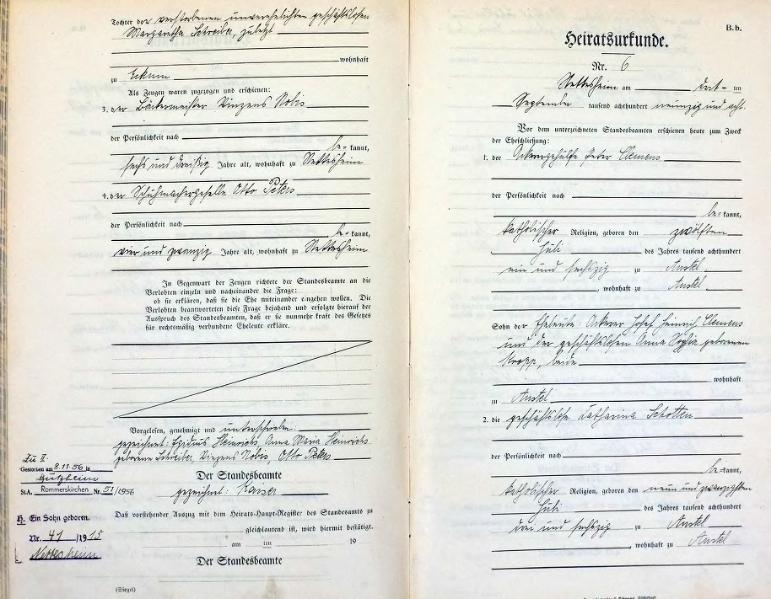 Tochter der verstorbenen unverehelichten geschäftslosen
Margaretha Schreiber, zuletzt
wohnhaft
zu Eckum
Als Zeugen waren zugezogen und erschienen:
3. der Bäckermeister Vinzens Nobis
der Persönlichkeit nach
be- kannt,
sechs und dreißig Jahre alt, wohnhaft zu Nettesheim
4. der Schuhmachergeselle Otto Peters
der Persönlichkeit nach
be- kannt,
vier und zwanzig Jahre alt, wohnhaft zu Nettesheim
In Gegenwart der Zeugen richtete der Standesbeamte an die
Verlobten einzeln und nacheinander die Frage:
ob sie erklären, daß sie die Ehe miteinander eingehen wollen. Die
Verlobten beantworteten diese Frage bejahend und erfolgte hierauf der
Ausspruch des Standesbeamten, daß er sie nunmehr kraft des Gesetzes
für rechtmäßig verbundene Eheleute erkläre.
Vorgelesen, genehmigt und unterschrieben:
gezeichnet: Egidius Heinrichs, Anna Maria Heinrichs
geborene Schreiber, Vinzens Nobis, Otto Peters
Zu 2.
Gestorben am 8.11.56 in
St.A. Rommerskirchen Nr. 51/1956
Der Standesbeamte
gezeichnet:
H. Ein Sohn geboren.
Nr. 41 /1913
Nettesheim
Daß vorstehender Auszug mit dem Heirats-Haupt-Register des Standesamts zu
gleichlautend ist, wird hiermit bestätigt.
am ten 19
Der Standesbeamte
(Siegel)
B. b.
Heiratsurkunde.
Nr. 6
Nettesheim am dritten
September tausend achthundert neunzig und acht.
Vor dem unterzeichneten Standesbeamten erschienen heute zum Zweck
der Eheschließung:
1. der Ackergehülfe Peter Clemens
der Persönlichkeit nach
be- kannt,
katholischer Religion, geboren den zwölften
Juli des Jahres tausend achthundert
ein und sechzig zu Anstel
, wohnhaft zu Anstel
Sohn der Eheleute Ackerer Josef Heinrich Clemens
und der geschäftslosen Anna Sophia geborenen
Kropp, beide
wohnhaft
zu Anstel
2. die geschäftslose Katharina Schotten
der Persönlichkeit nach
be- kannt,
katholischer Religion, geboren den neun und zwanzigsten
Juli des Jahres tausend achthundert
drei und sechzig zu Anstel
, wohnhaft zu Anstel